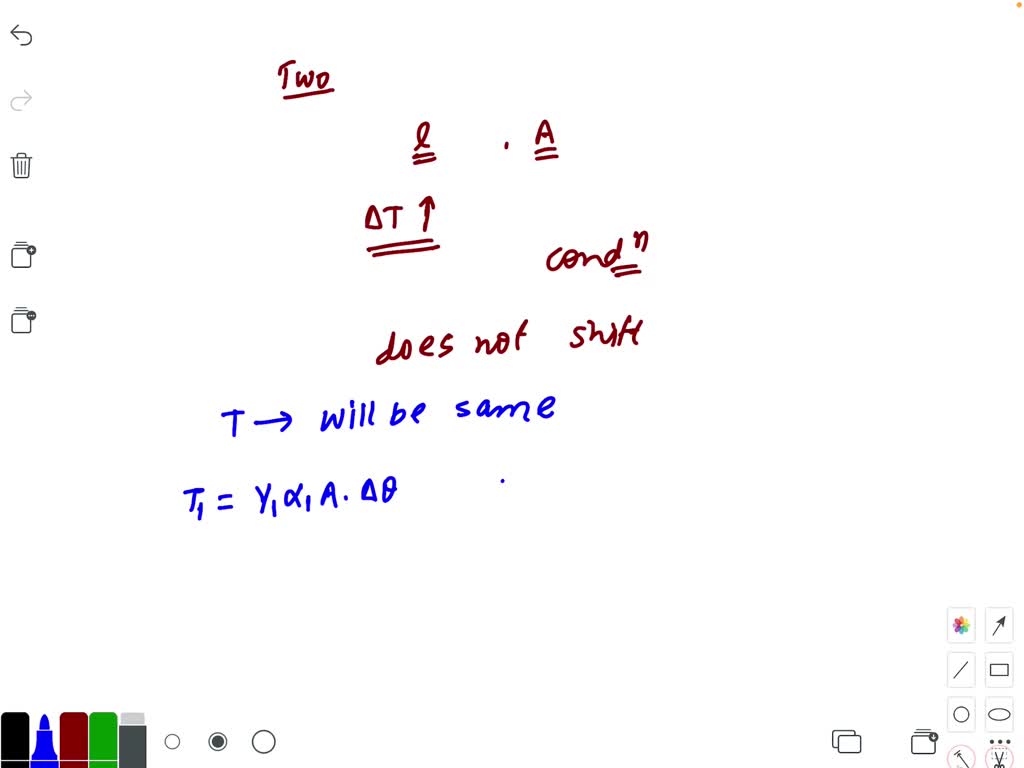 Two
l . A
ΔT ↑
condⁿ
does not shift
T → will be same
T₁ = Y₁ α₁ A . Δθ